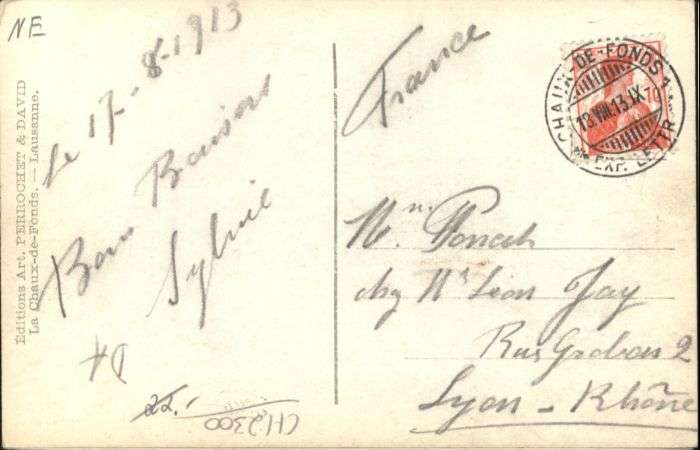 NE
Le 17-8-1913
Bons Baisers
Sylvie
Éditions Art. PERROCHET & DAVID
La Chaux-de-Fonds. — Lausanne.
22.-
CH2300
France
CHAUX-DE-FONDS 1
13.VIII.13.IX-
EXP. LETTR.
chez Mr Léon Jay
Rue 2
Lyon - Rhône